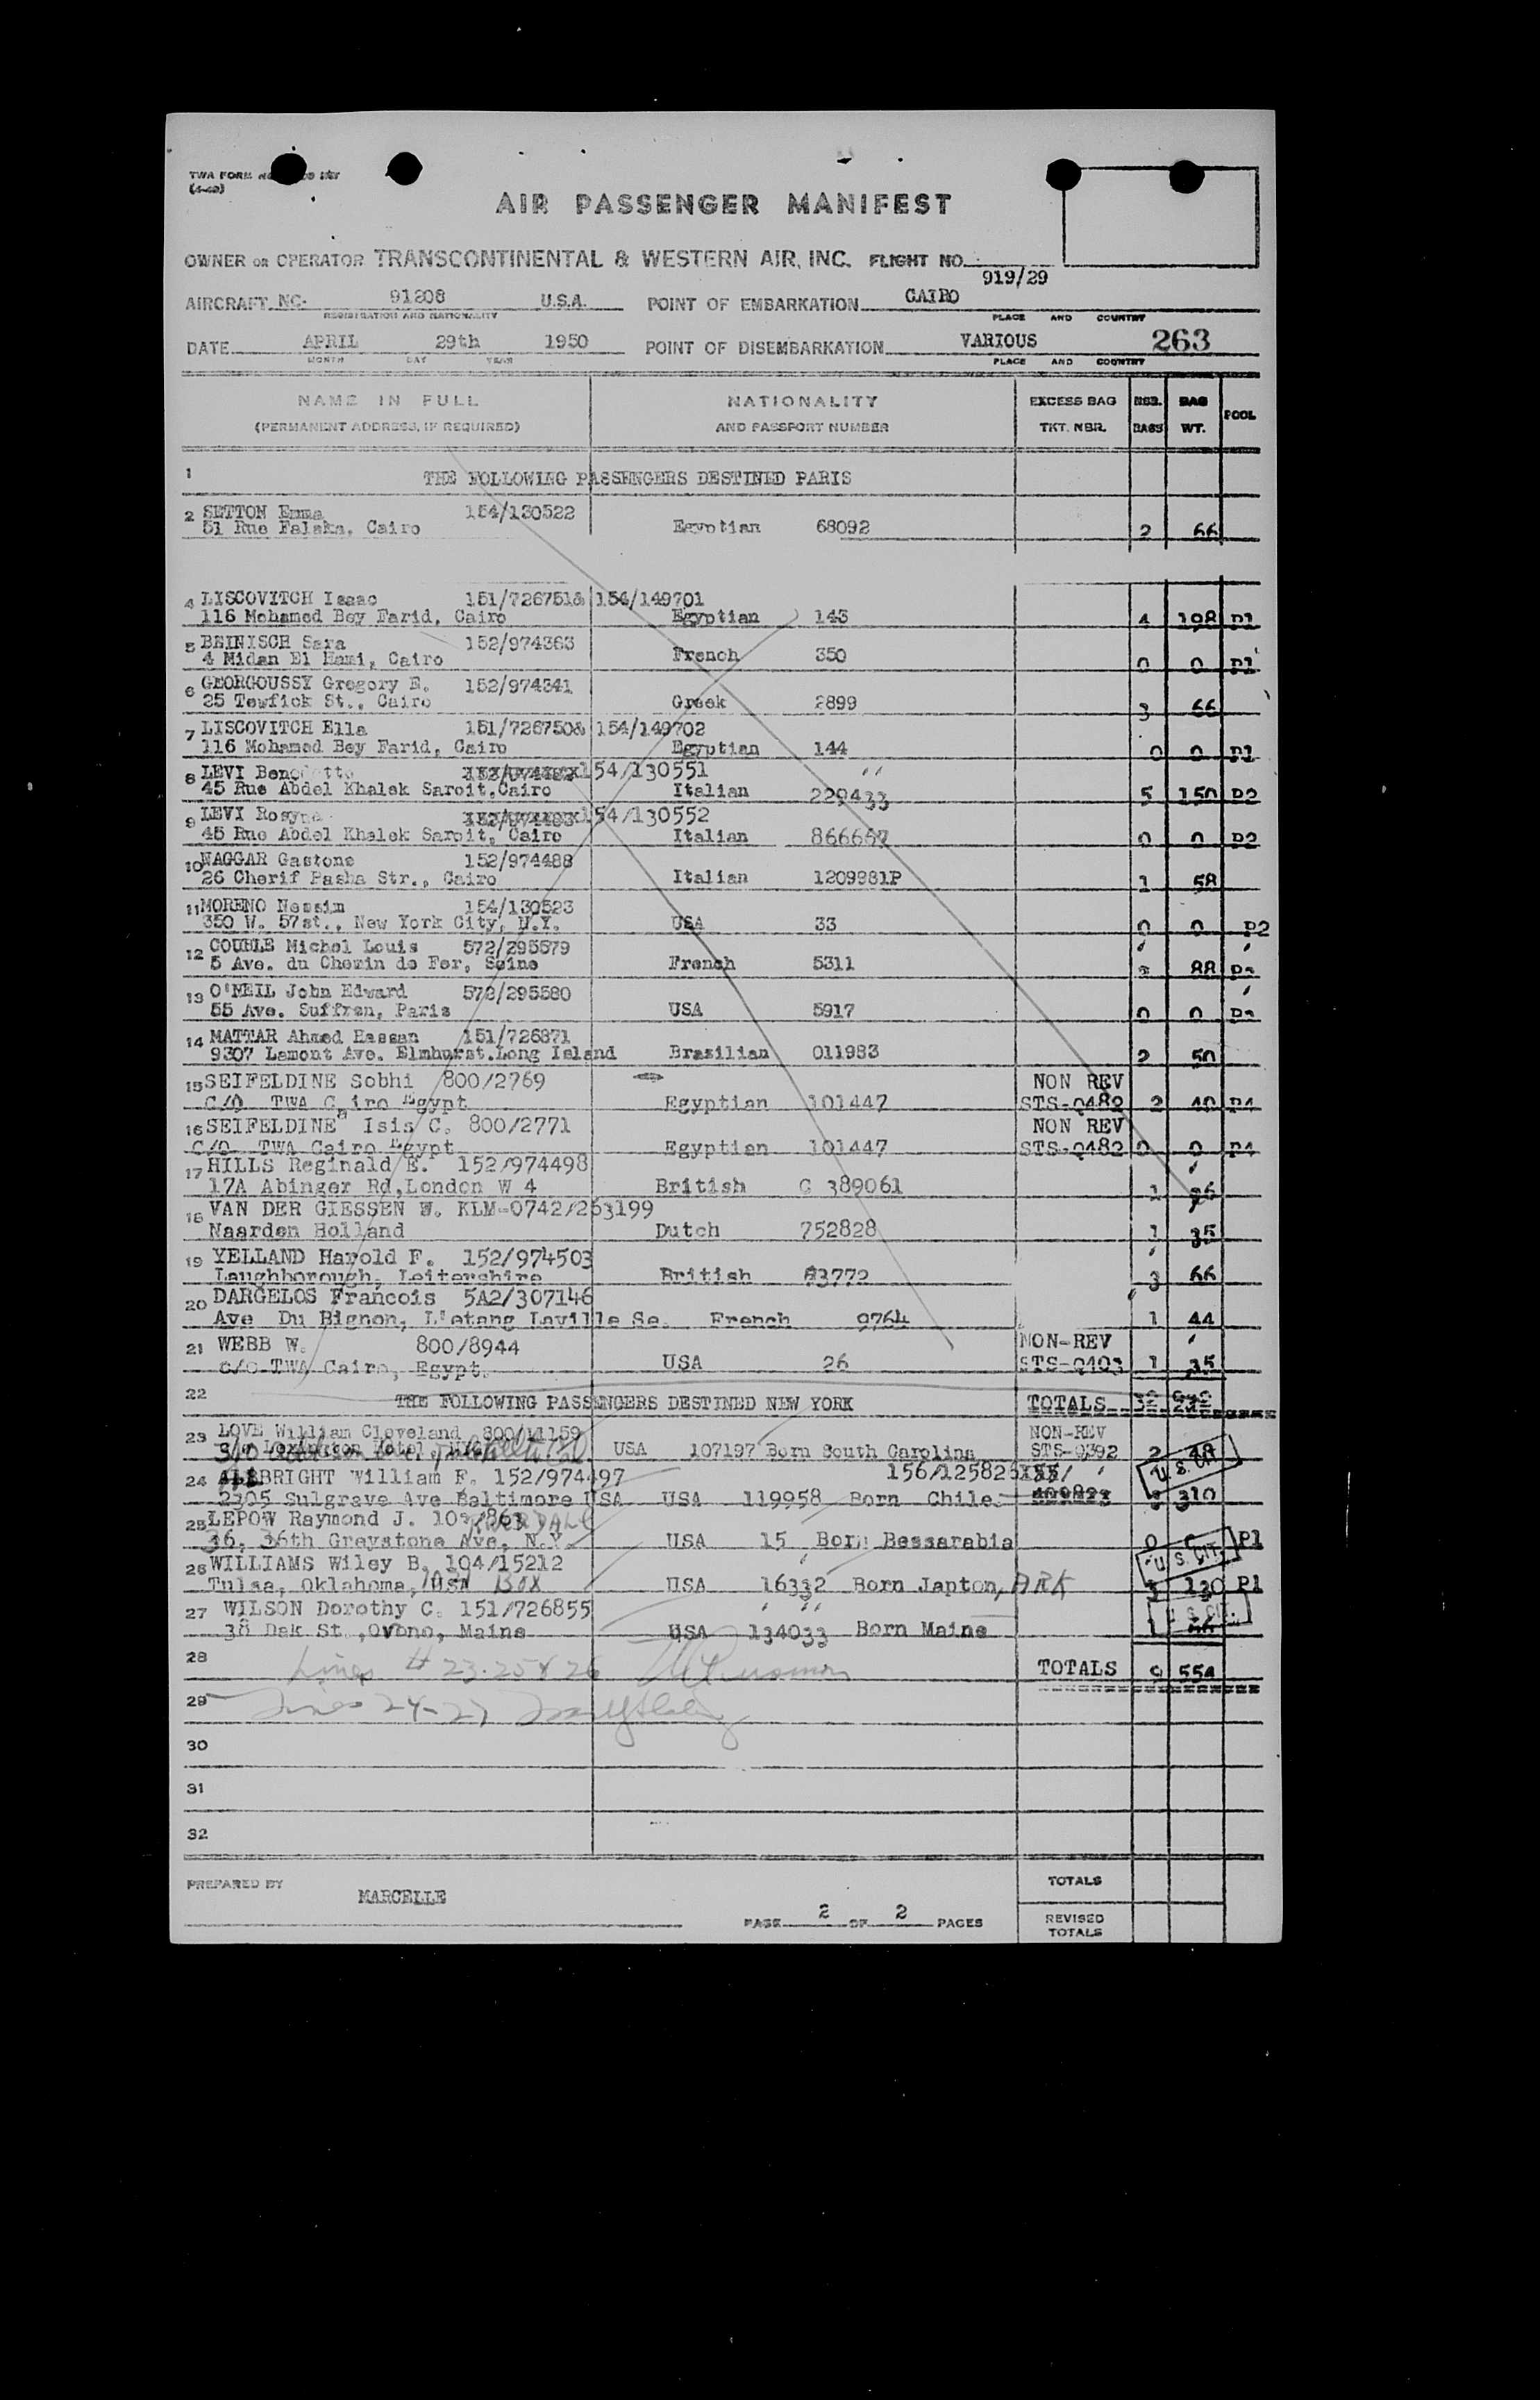 TWA FORM
AIR PASSENGER MANIFEST
OWNER OR OPERATOR TRANSCONTINENTAL & WESTERN AIR, INC. FLIGHT NO. 919/29
AIRCRAFT NO. 91208 U.S.A. POINT OF EMBARKATION CAIRO
REGISTRATION AND NATIONALITY PLACE AND COUNTRY
DATE APRIL 29th 1950 POINT OF DISEMBARKATION VARIOUS 263
MONTH DAY YEAR PLACE AND COUNTRY
NAME IN FULL NATIONALITY EXCESS BAG NBR. BAG POOL
(PERMANENT ADDRESS, IF REQUIRED) AND PASSPORT NUMBER TKT. NBR. BAGS WT.
1 THE FOLLOWING PASSENGERS DESTINED PARIS
2 SETTON Emma 154/130522
51 Rue Falaka, Cairo Egyptian 68092 2 66
4 LISCOVITCH Isaac 151/726751& 154/149701
116 Mohamed Bey Farid, Cairo Egyptian 143 4 198 P1
5 BEINISCH Sara 152/974363
4 Midan El Hami, Cairo French 350 0 0 P1
6 GEORGOUSSY Gregory E. 152/974341
25 Tewfick St., Cairo Greek 2899 3 66
7 LISCOVITCH Ella 151/726750& 154/149702
116 Mohamed Bey Farid, Cairo Egyptian 144 0 0 P1
8 LEVI Benedetto 154/130551
45 Rue Abdel Khalek Saroit,Cairo Italian 229433 5 150 P2
9 LEVI Rosyne 154/130552
45 Rue Abdel Khalek Saroit, Cairo Italian 866667 0 0 P2
10 NAGGAR Gastone 152/974488
26 Cherif Pasha Str., Cairo Italian 1209981P 1 58
11 MORENO Nessim 154/130523
350 W. 57st., New York City, N.Y. USA 33 0 0 P2
12 COUBLE Michel Louis 572/295579
5 Ave. du Chemin de Fer, Seine French 5311 3 88 P3
13 O'NEIL John Edward 572/295580
55 Ave. Suffren, Paris USA 5917 0 0 P3
14 MATTAR Ahmed Hassan 151/726871
9307 Lamont Ave. Elmhurst.Long Island Brasilian 011983 2 50
15 SEIFELDINE Sobhi 800/2769 NON REV
C/O TWA Cairo Egypt Egyptian 101447 STS-0482 2 40 P4
16 SEIFELDINE Isis C. 800/2771 NON REV
C/O TWA Cairo Egypt Egyptian 101447 STS-0482 0 0 P4
17 HILLS Reginald E. 152/974498
17A Abinger Rd,London W 4 British C 389061 1
18 VAN DER GIESSEN W. KLM-0742/263199
Naarden Holland Dutch 752828 1 35
19 YELLAND Harold F. 152/974503
Laughborough, Leitershire British 3772 3 66
20 DARGELOS Francois 5A2/307146
Ave Du Bignon, L'etang Laville Se. French 9764 1 44
21 WEBB W. 800/8944 NON-REV
c/o TWA Cairo, Egypt. USA 26 STS-0403 1 35
22 THE FOLLOWING PASSENGERS DESTINED NEW YORK TOTALS
23 LOVE William Cleveland 800/11159 NON-REV
Lexington Hotel, NYC USA 107197 Born South Carolina STS-0392 2 48
U.S. CIT.
24 ALLBRIGHT William F. 152/974497 156/125825
2305 Sulgrave Ave Baltimore USA USA 119958 Born Chile 310
25 LEPOW Raymond J. RIVERDALE
36, 36th Greystone Ave, N.Y. USA 15 Born Bessarabia 0 P1
U.S. CIT.
26 WILLIAMS Wiley B. 104/15212
Tulsa, Oklahoma, USA BOX USA 16332 Born Japton, ARK 3 130 P1
U.S. CIT.
27 WILSON Dorothy C. 151/726855
38 Oak St ,Orono, Maine USA 134033 Born Maine 1 66
28 Lines # 23.25 & 26 TOTALS 9 554
29 Lines 24-27
30
31
32
PREPARED BY MARCELLE TOTALS
PAGE 2 OF 2 PAGES REVISED TOTALS